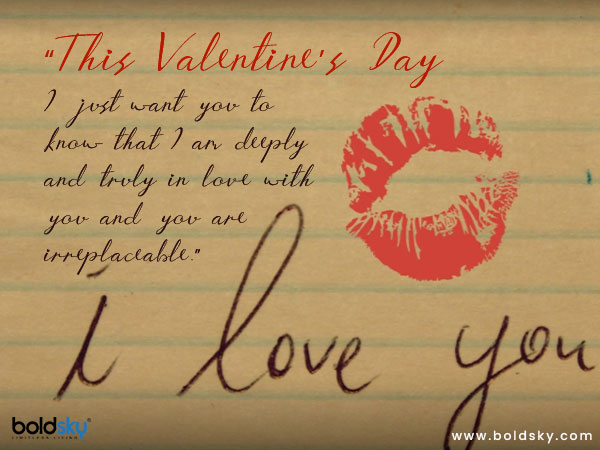 "This Valentine's Day
I just want you to
know that I am deeply
and truly in love with
you and you are
irreplaceable."
i love you
boldsky®
LIMITLESS LIVING
www.boldsky.com